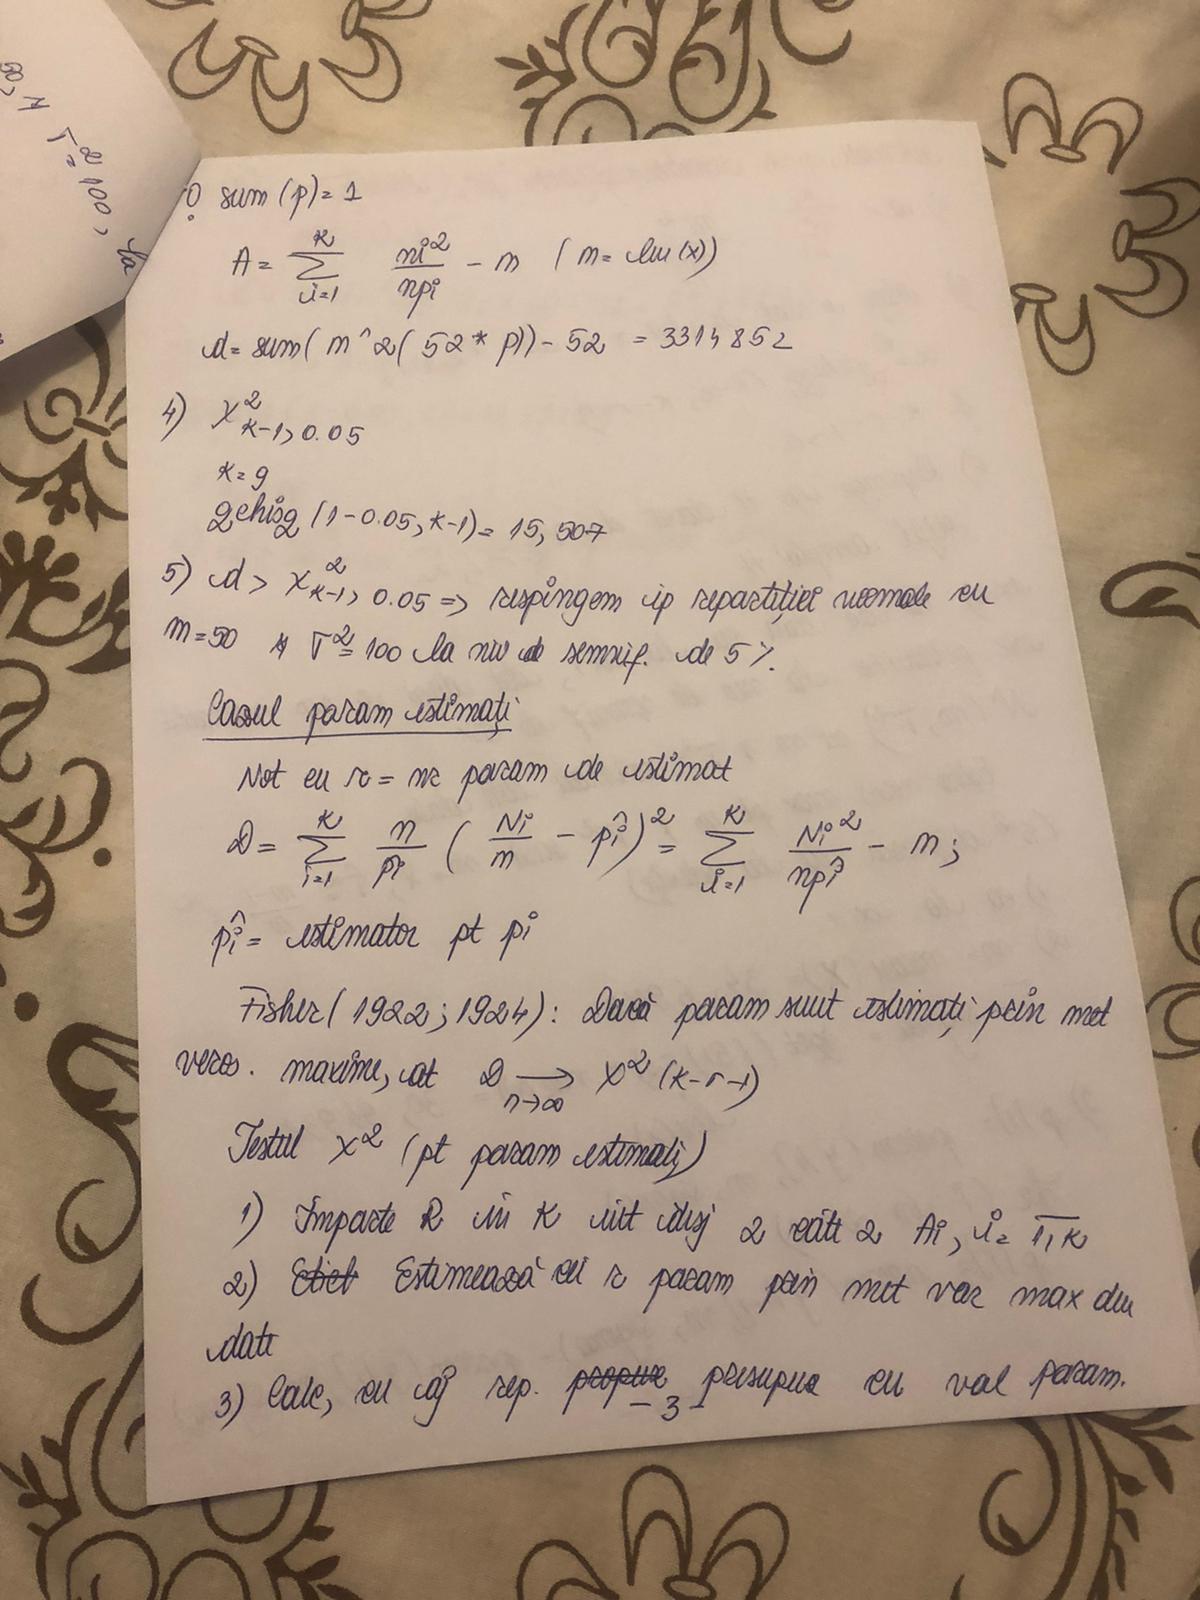 50, și
σ²=100, la
! sum (p)=1
A = Σ_{i=1}^{k} ni²/npi - n (n = len(x))
d = sum( n^2( 52 * p)) - 52 = 3314852
4) χ²_{k-1, 0.05}
k=9
qchisq (1-0.05, k-1) = 15,507
5) d > χ²_{k-1, 0.05} => respingem ip repartiției normale cu
m=50 și σ²=100 la niv de semnif. de 5%.
Cazul param estimați
Not cu r = nr param de estimat
D = Σ_{i=1}^{k} n/pi ( Ni/n - p̂i )² = Σ_{i=1}^{k} Ni²/np̂i - n;
p̂i = estimator pt pi
Fisher (1922; 1924): Dacă param sunt estimați prin met
veros. maxime, at D →_{n→∞} χ² (k-r-1)
Testul χ² (pt param estimați)
1) Imparte R in k int disj 2 câte 2 Ai, i = 1,k
2) Estimează cei r param prin met ver max din
date
3) Calc, cu aj rep. presupuse cu val param.
- 3 -